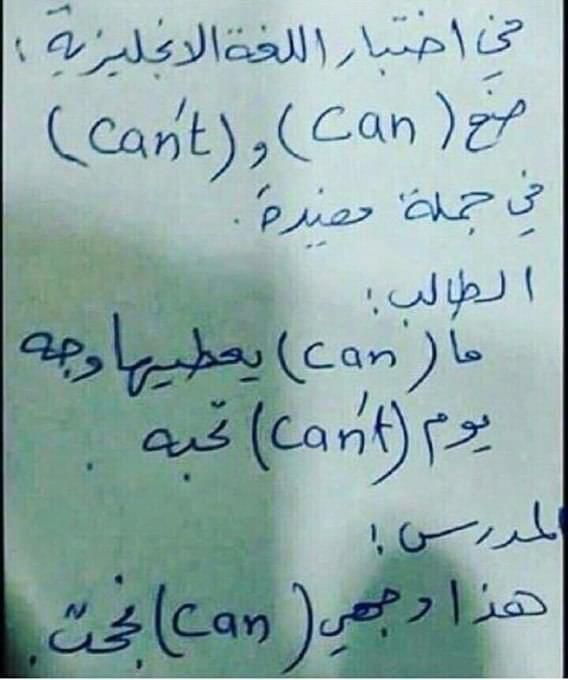 في اختبار اللغة الانجليزية :
ضع (Can) و (Can't)
في جملة مفيدة .
الطالب :
ما (Can) يعطيها وجه
يوم (Can't) تحبه .
المدرس :
هذا وجهي (Can) نجحت .